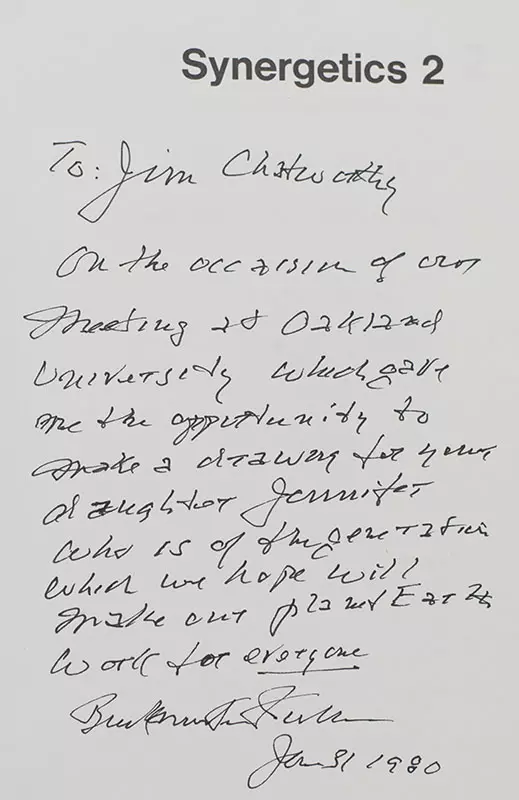 Synergetics 2
To: Jim Chatworthy
On the occasion of our
meeting at Oakland
University which gave
me the opportunity to
make a drawing for your
daughter Jennifer
who is of the generation
which we hope will
make our planet Earth
work for everyone
Buckminster Fuller
Jan 31 1980